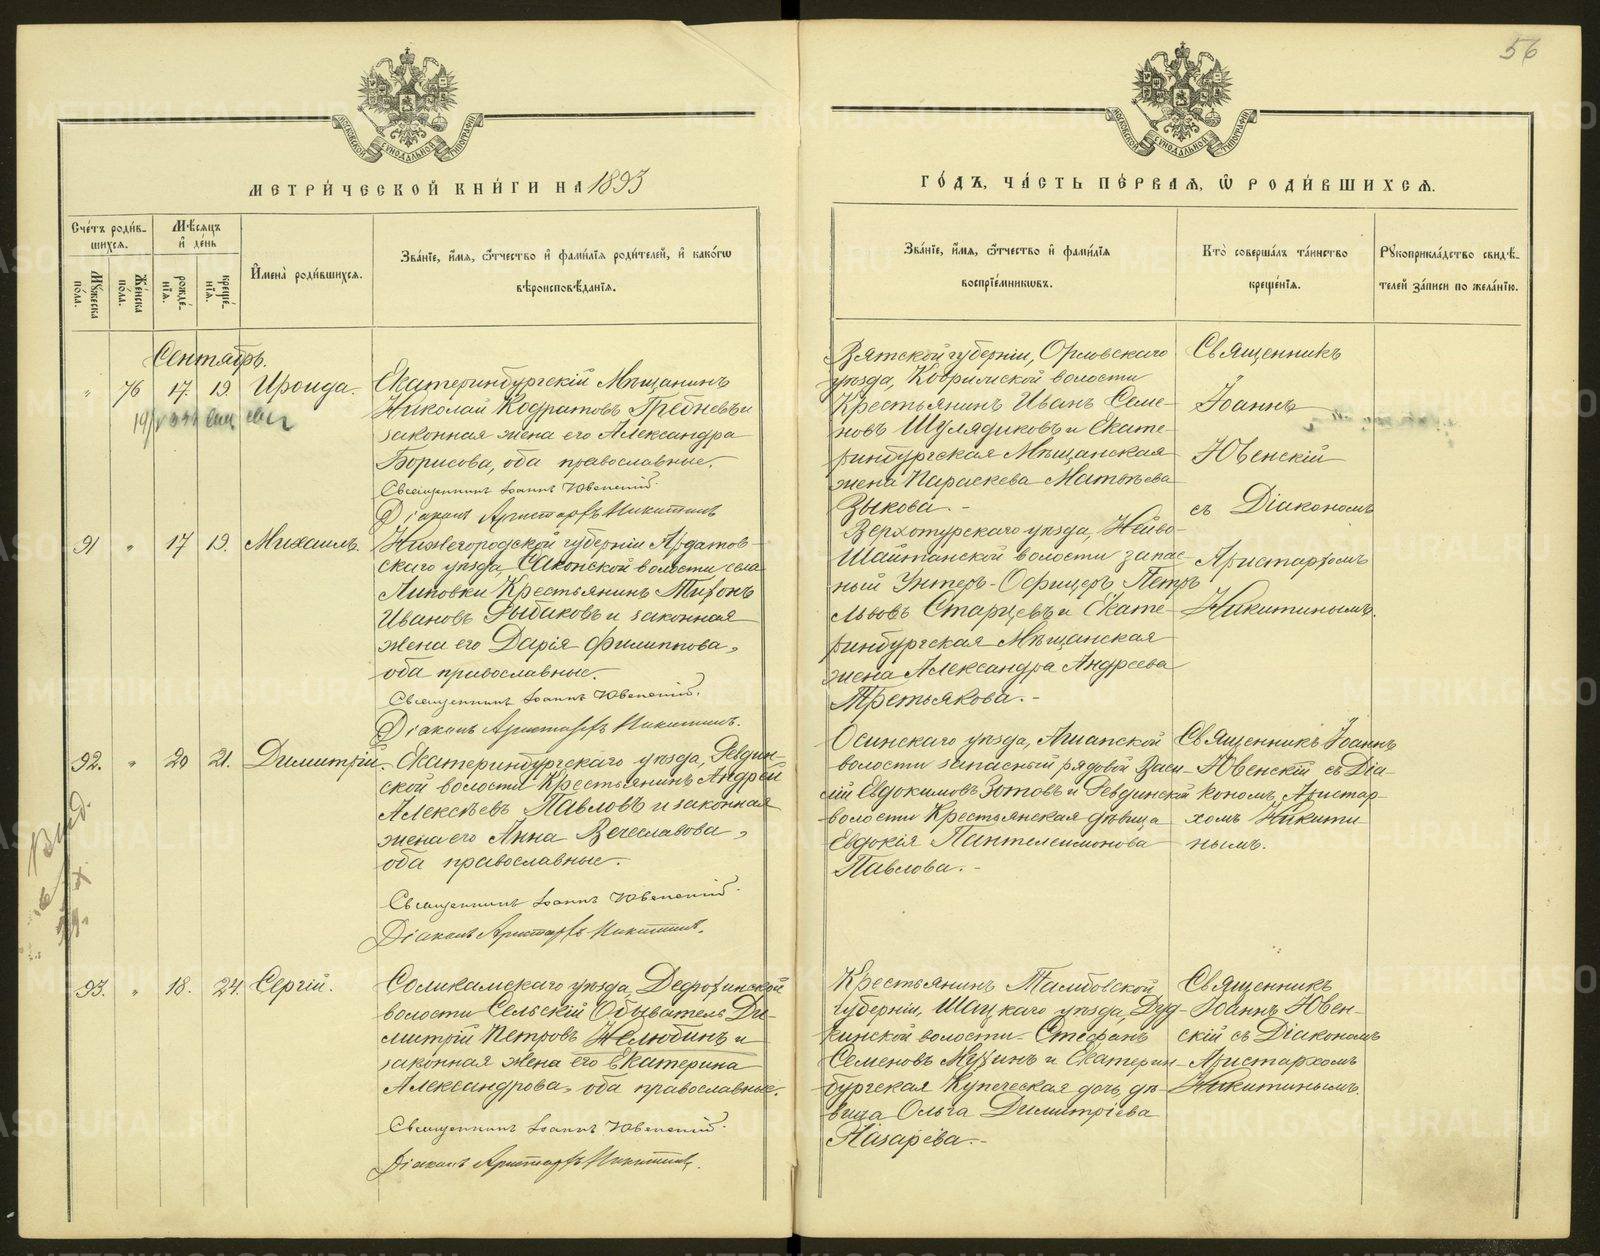 56
МЕТРИ́ЧЕСКОЙ КНИ́ГИ НА 1893
ГО́ДЪ, ЧА́СТЬ ПЕ́РВАЯ, Ѿ РОДИ́ВШИХСЯ.
Сче́тъ роди́в-
шихся.
Му́жеска по́ла.
Же́нска по́ла.
Мѣ́сяцъ
и҆ де́нь
рожде́-
нїя.
креще́-
нїя.
И҆мена̀ роди́вшихся.
Зва́нїе, и҆́мя, ѻ҆́тчество и҆ фами́лїя роди́телей, и҆ како́гѡ
вѣроисповѣ́данїя.
Зва́нїе, и҆́мя, ѻ҆́тчество и҆ фами́лїя
воспрїе́мникѡвъ.
Кто̀ соверша́лъ та́инство
креще́нїя.
Рꙋкоприкла́дство свидѣ́-
телей за́писи по жела́нїю.
Сентябрь.
" 76 17. 19. Ироида.
Екатеринбургскій Мѣщанинъ
Николай Кодратовъ Гребневъ и
законная жена его Александра
Борисова, оба православные.
Священникъ Іоаннъ Ювенскій.
Діаконъ Аристархъ Никитинъ
Вятской губерніи, Орловскаго
уѣзда, Кобрилской волости
Крестьянинъ Иванъ Семе-
новъ Шулядиковъ и Екате-
ринбургская Мѣщанская
жена Параскева Матѳѣева
Зыкова.-
Священникъ
Іоаннъ
Ювенскій
съ Діакономъ
Аристархомъ
Никитинымъ.
91 " 17 19. Михаилъ.
Нижегородской губерніи Ардатов-
скаго уѣзда, Саконской волости села
Липовки Крестьянинъ Тихонъ
Ивановъ Рыбаковъ и законная
жена его Дарія Филиппова,
оба православные.
Священникъ Іоаннъ Ювенскій.
Діаконъ Аристархъ Никитинъ.
Верхотурскаго уѣзда, Нейво-
Шайтанской волости запас-
ный Унтеръ-Офицеръ Петръ
Львовъ Старцевъ и Екате-
ринбургская Мѣщанская
жена Александра Андреева
Третьякова.-
92. " 20 21. Димитрій.
Екатеринбургскаго уѣзда, Ревдин-
ской волости Крестьянинъ Андрей
Алексѣевъ Павловъ и законная
жена его Анна Вячеславова,
оба православные.
Священникъ Іоаннъ Ювенскій.
Діаконъ Аристархъ Никитинъ.
Осинскаго уѣзда, Ашапской
волости запасный рядовой Васи-
лій Евдокимовъ Зотовъ и Ревдинской
волости Крестьянская дѣвица
Евдокія Пантелеимонова
Павлова.-
Священникъ Іоаннъ
Ювенскій съ Діа-
кономъ Аристар-
хомъ Никити
нымъ.
93. " 18. 24. Сергій.
Соликамскаго уѣзда, Дедюхинской
волости Сельскій Обыватель Ди-
митрій Петровъ Нелюбинъ и
законная жена его Екатерина
Александрова, оба православные.
Священникъ Іоаннъ Ювенскій.
Діаконъ Аристархъ Никитинъ.
Крестьянинъ Тамбовской
губерніи, Шацкаго уѣзда, Дуд-
кинской волости Стефанъ
Семеновъ Мухинъ и Екатерин-
бургская Купеческая дочь, дѣ-
вица Ольга Димитріева
Назарева.-
Священникъ
Іоаннъ Ювен-
скій съ Діакономъ
Аристархомъ
Никитинымъ.